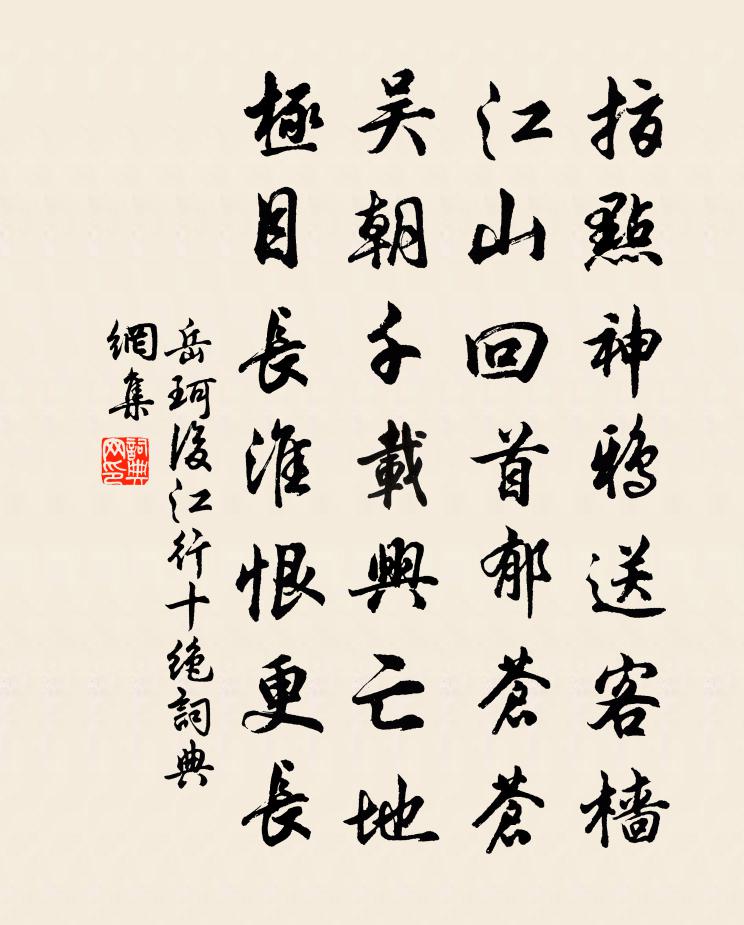 指點神鴉送客檣
江山回首郁蒼蒼
吴朝千載興亡地
極目長淮恨更長
岳珂後江行十絶詞典
網集
詞典網印